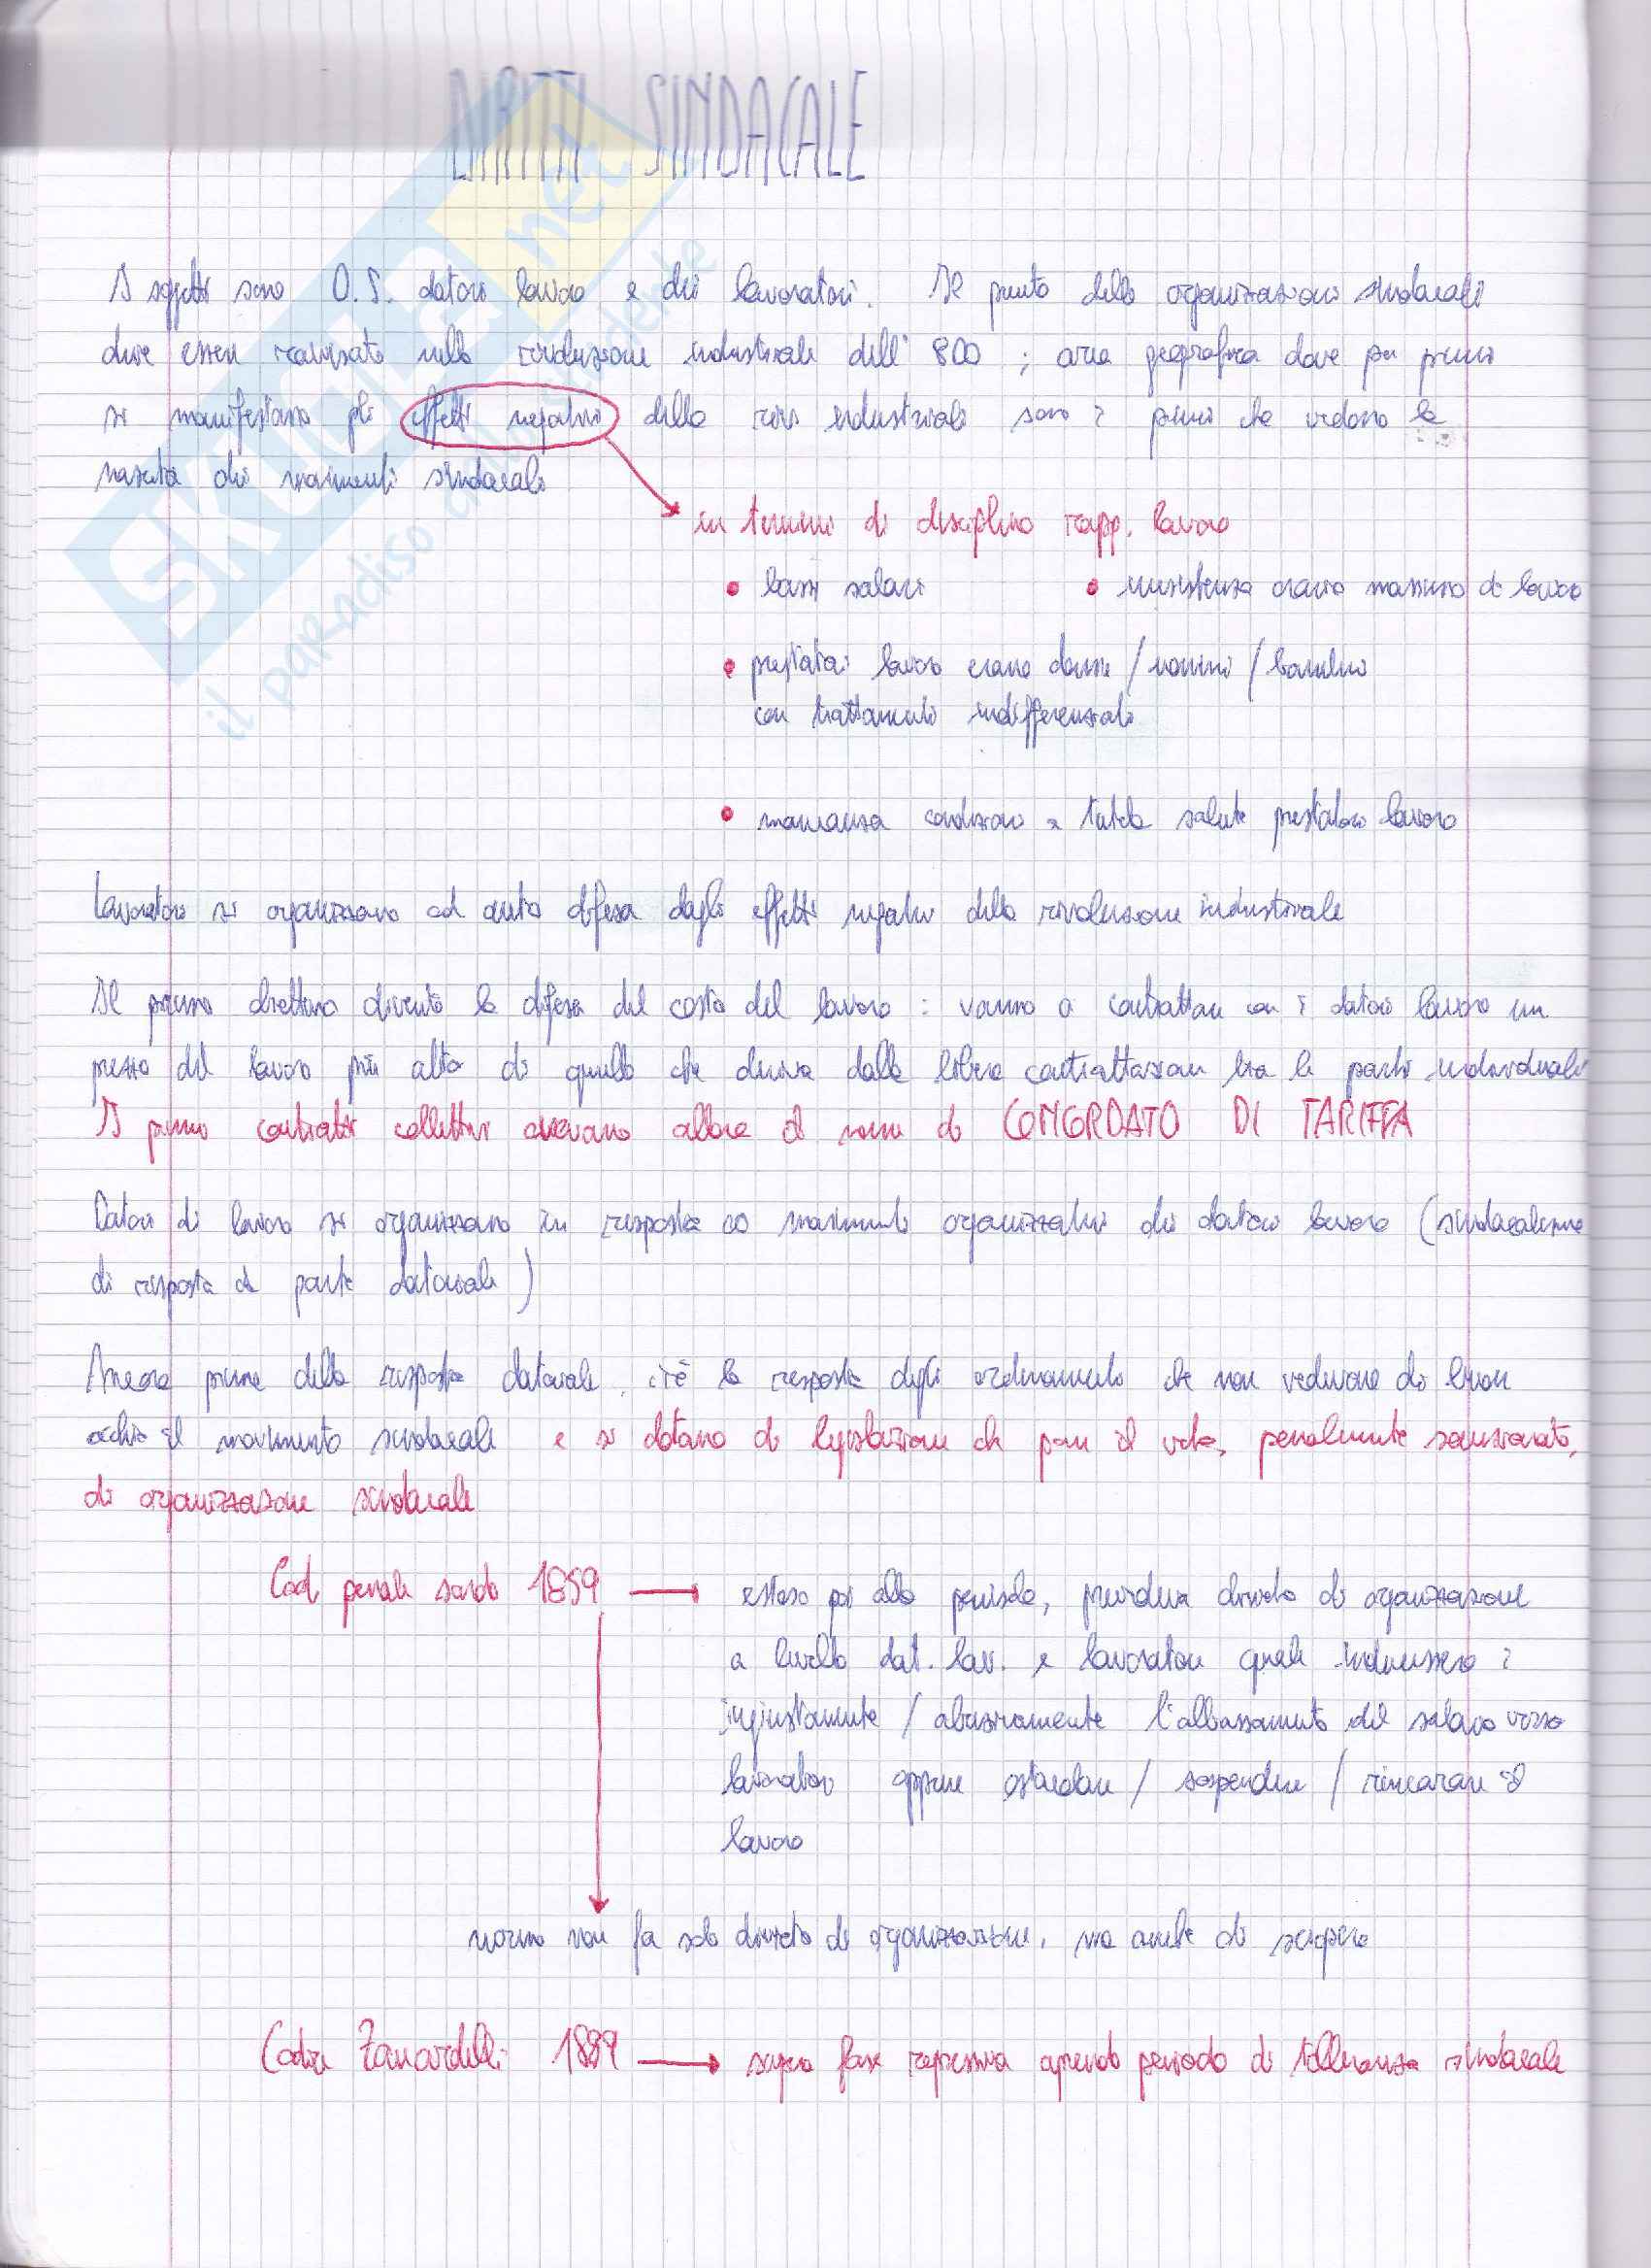 DIRITTI SINDACALE
I soggetti sono O.S. datori lavoro e dei lavoratori. Il punto delle organizzazioni sindacali
deve essere ravvisato nella rivoluzione industriale dell' 800 ; area geografica dove per primi
si manifestano gli effetti negativi della riv. industriale sono i primi che vedono la
nascita dei movimenti sindacali
in termini di disciplina rapp. lavoro
• bassi salari
• inesistenza orario massimo di lavoro
• prestatori lavoro erano donne / uomini / bambini
con trattamenti indifferenziati
• mancanza condizioni e tutela salute prestatori lavoro
Lavoratori si organizzano ad auto difesa dagli effetti negativi della rivoluzione industriale
Il primo obiettivo diventa la difesa del costo del lavoro : vanno a contrattare con i datori lavoro un
prezzo del lavoro più alto di quello che deriva dalla libera contrattazione tra le parti individuali
I primi contratti collettivi avevano allora il nome di CONCORDATO DI TARIFFA
Datori di lavoro si organizzano in risposta movimenti organizzativi dei datori lavoro (sindacalismo
di risposta da parte datoriale)
Ancora prima della risposta datoriale, c'è la risposta degli ordinamento che non vedevano di buon
occhio il movimento sindacale e si dotano di legislazione che pone il veto, penalmente sanzionato,
di organizzazione sindacale
Cod. penale sardo 1859 → esteso poi alla penisola, prevedeva divieto di organizzazione
a livello dat. lav. e lavoratori quale inducessero
ingiustamente / abusivamente l'abbassamento del salario verso
lavoratori oppure ostacolare / sospendere / rincarare il
lavoro
norma non fa solo divieto di organizzazione, ma anche di sciopero
Codice Zanardelli 1889 → supera fase repressiva aprendo periodo di tolleranza sindacale
SKUOLA.net
il paradiso dello studente